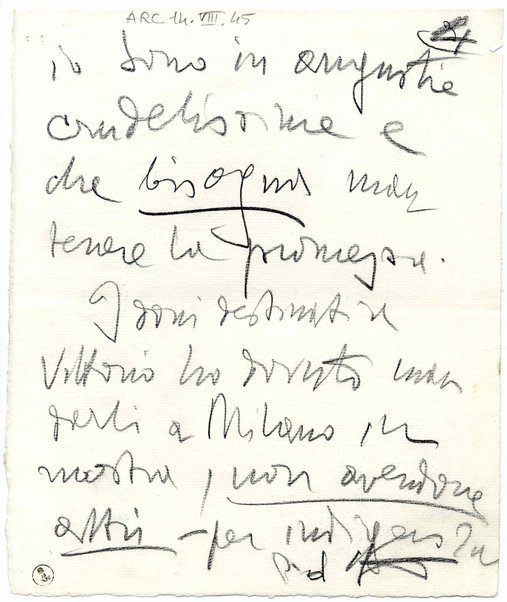 ARC 14.VIII.45
io sono in angustie
crudelissime e
che bisogna man
tenere la promessa.
I doni destinati a
Vittorio ho dovuto man
darli a Milano in
mostra, non avendone
altri - per indigenza